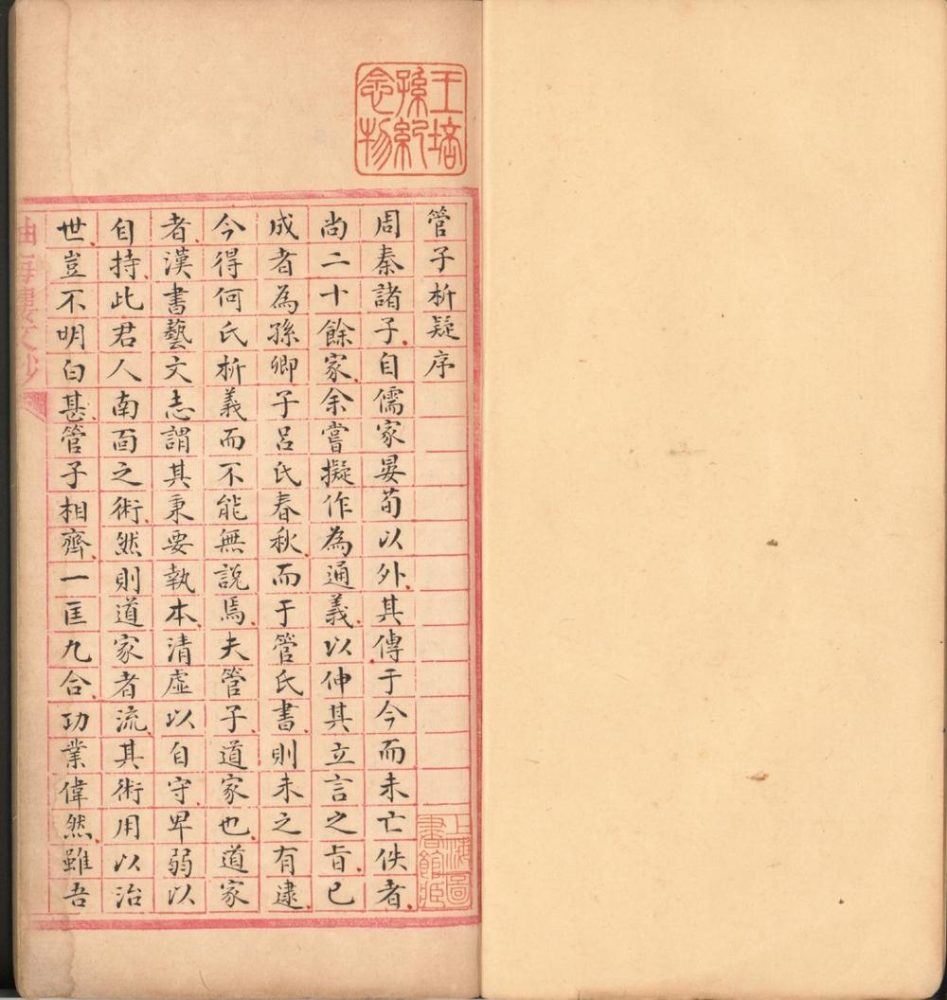 王培孫紀念物
管子析疑序
周秦諸子自儒家晏荀以外其傳于今而未亡佚者
尚二十餘家余嘗擬作為通義以伸其立言之旨已
成者為孫卿子呂氏春秋而于管氏書則未之有逮
今得何氏析義而不能無說焉夫管子道家也道家
者漢書藝文志謂其秉要執本清虛以自守卑弱以
自持此君人南面之術然則道家者流其術用以治
世豈不明白甚管子相齊一匡九合功業偉然雖吾
上海圖書館藏
海樓文鈔